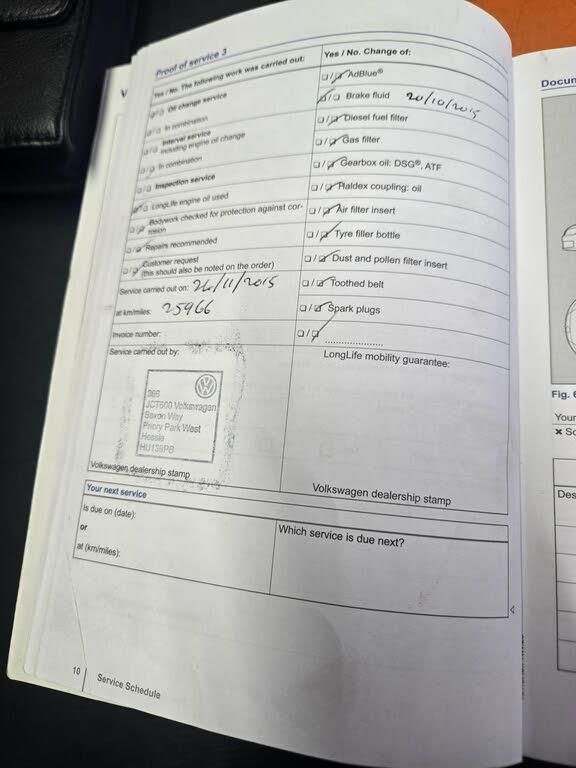 Proof of service 3
Yes / No. The following work was carried out:
Oil change service
In combination
Interval service
including engine oil change
In combination
Inspection service
LongLife engine oil used
Bodywork checked for protection against cor-
rosion
Repairs recommended
Customer request
(this should also be noted on the order)
Service carried out on: 26/11/2015
at km/miles: 25966
Invoice number:
Service carried out by:
366
JCT600 Volkswagen
Saxon Way
Priory Park West
Hessle
HU139PB
Volkswagen dealership stamp
Yes / No. Change of:
AdBlue®
Brake fluid 20/10/2015
Diesel fuel filter
Gas filter
Gearbox oil: DSG®, ATF
Haldex coupling: oil
Air filter insert
Tyre filler bottle
Dust and pollen filter insert
Toothed belt
Spark plugs
LongLife mobility guarantee:
Volkswagen dealership stamp
Your next service
Is due on (date):
or
at (km/miles):
Which service is due next?
10 Service Schedule
Docum
Fig. 6
Your
Des